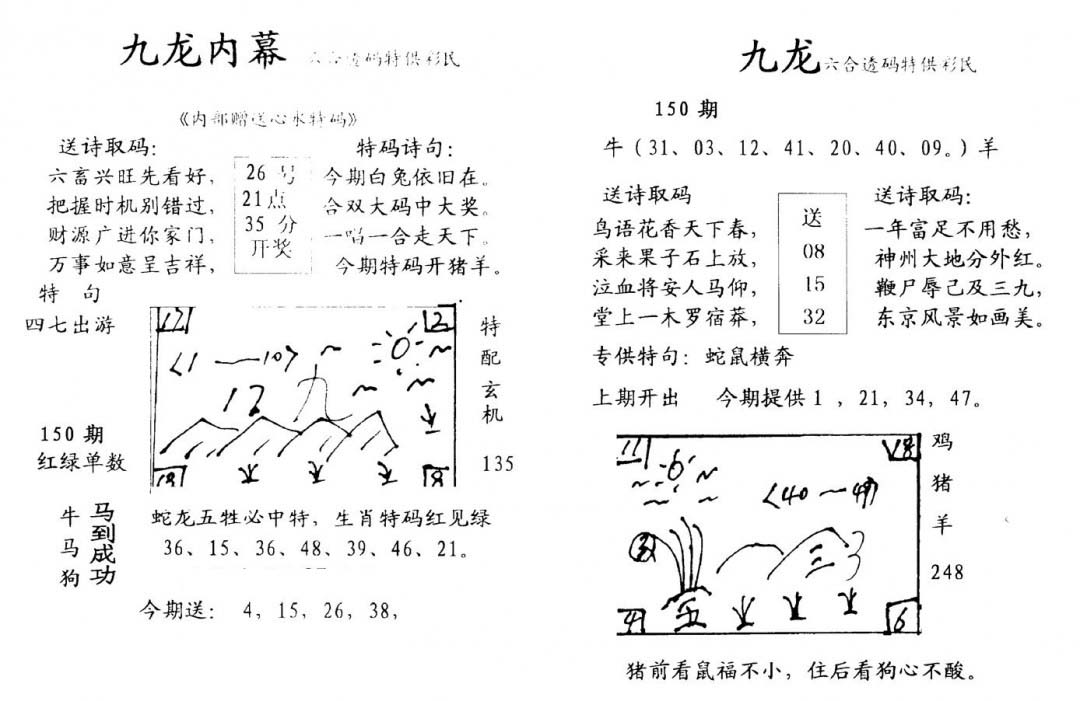 九龙内幕 六合透码特供彩民
《内部赠送心水特码》
送诗取码：
六畜兴旺先看好，
把握时机别错过，
财源广进你家门，
万事如意呈吉祥，
26 号
21点
35 分
开奖
特码诗句：
今期白兔依旧在。
合双大码中大奖。
一唱一合走天下。
今期特码开猪羊。
特 句
四七出游
150 期
红绿单数
牛
马
狗
马到成功
12
〈1——10〉
12 九
18
特配玄机
135
蛇龙五牲必中特，生肖特码红见绿
36、15、36、48、39、46、21。
今期送： 4，15，26，38，
九龙六合透码特供彩民
150 期
牛（31、03、12、41、20、40、09。）羊
送诗取码
鸟语花香天下春，
采来果子石上放，
泣血将安人马仰，
堂上一木罗宿莽，
送
08
15
32
送诗取码：
一年富足不用愁，
神州大地分外红。
鞭尸辱己及三九，
东京风景如画美。
专供特句：蛇鼠横奔
上期开出 今期提供1 ，21，34，47。
11
18
〈40—49〉
三
五
41
6
鸡
猪
羊
248
猪前看鼠福不小，住后看狗心不酸。